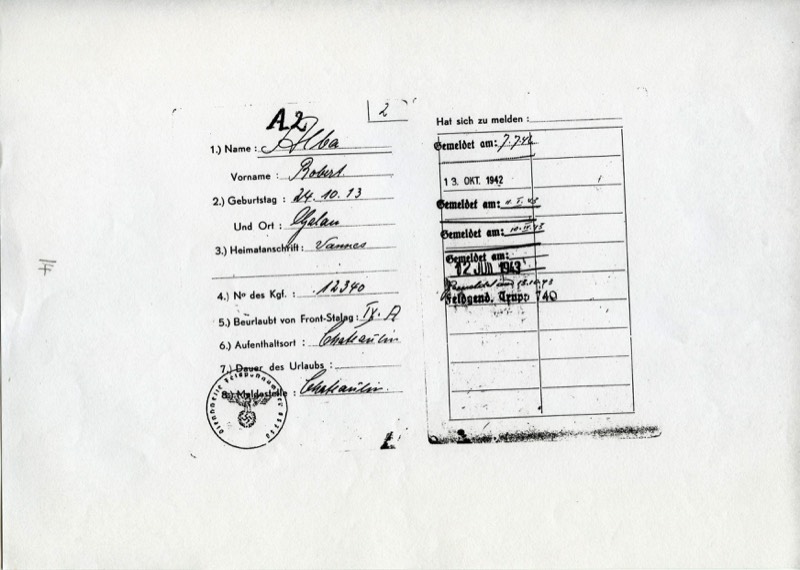 A.2
2
1.) Name : Alba
Vorname : Robert
2.) Geburtstag : 24.10.13
Und Ort :
3.) Heimatanschrift : Vannes
4.) No des Kgf. : 12340
5.) Beurlaubt von Front-Stalag : IX. A
6.) Aufenthaltsort : Chateaulin
7.) Dauer des Urlaubs :
8.) Meldestelle : Chateaulin
Hat sich zu melden :
Gemeldet am: 7.7.42
13. OKT. 1942
Gemeldet am:
Gemeldet am:
Gemeldet am:
12 JUNI 1943
Feldgend. Trupp 740
F